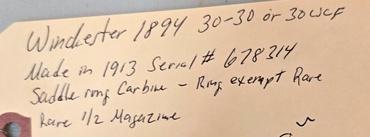 Winchester 1894 30-30 or 30WCF
Made in 1913 Serial # 678314
Saddle ring Carbine - Ring exempt Rare
Rare 1/2 Magazine